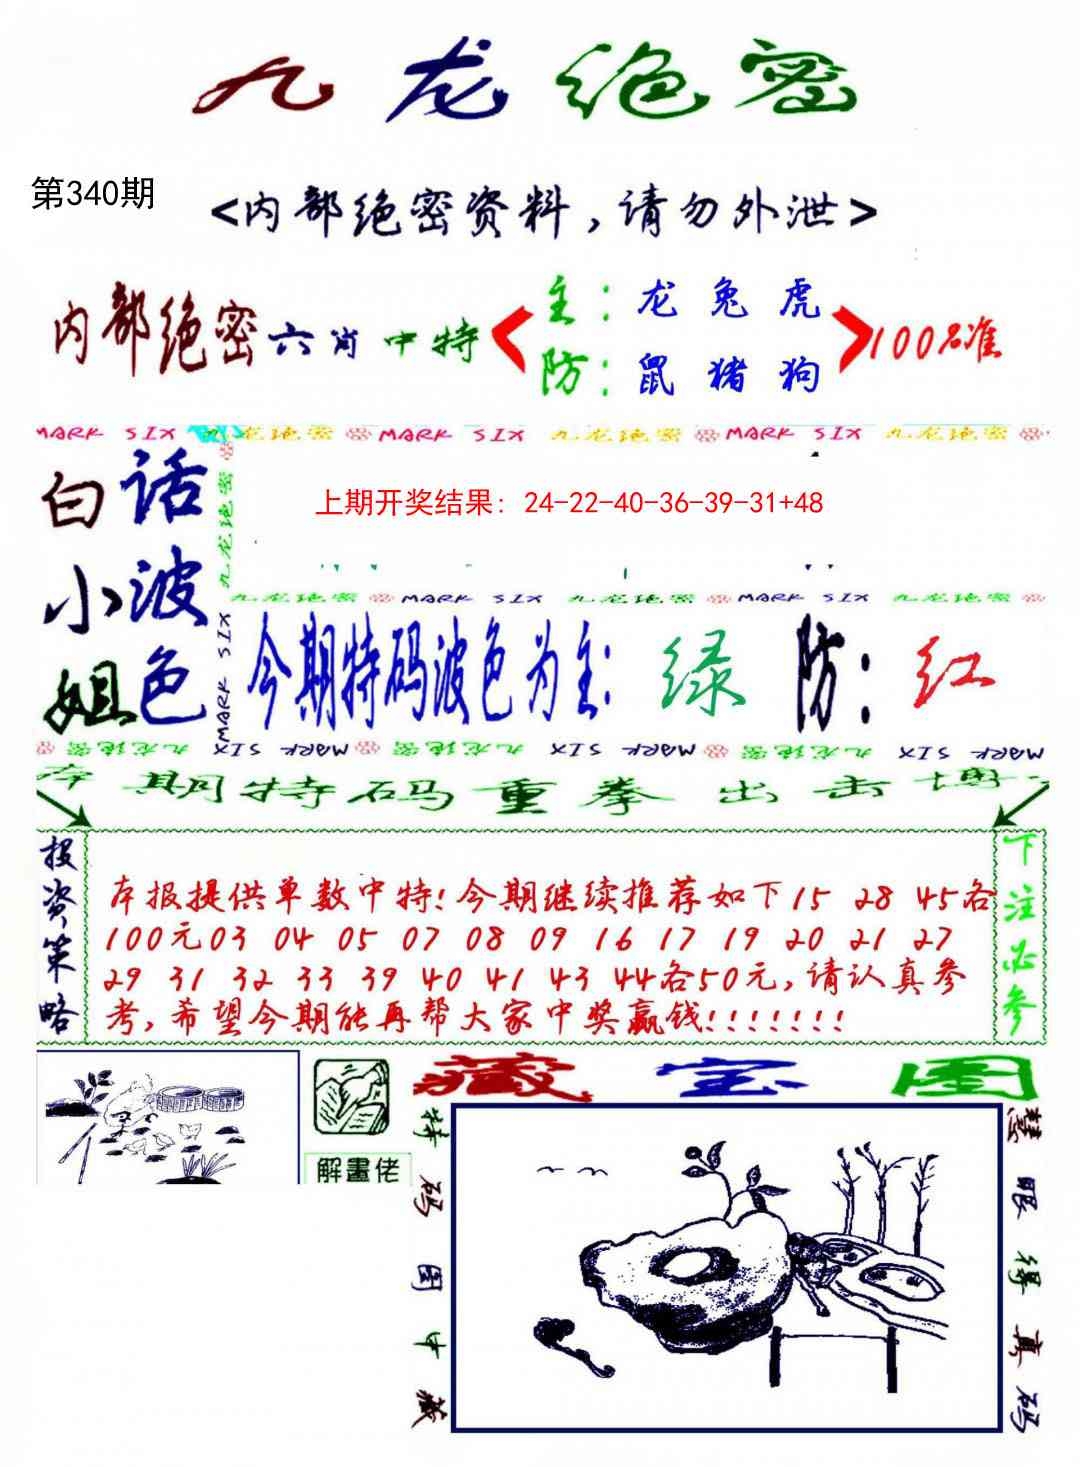 九龙绝密
第340期
<内部绝密资料,请勿外泄>
内部绝密六肖中特
主:龙 兔 虎
防:鼠 猪 狗
100%准
MARK SIX 九龙绝密 MARK SIX 九龙绝密 MARK SIX 九龙绝密
白话
小波
姐色
九龙绝密
MARK SIX
上期开奖结果: 24-22-40-36-39-31+48
九龙绝密 MARK SIX 九龙绝密 MARK SIX 九龙绝密
今期特码波色为主:绿 防:红
九龙绝密 MARK SIX 九龙绝密 MARK SIX 九龙绝密 MARK SIX
本期特码重拳出击博
投资策略
本报提供单数中特!今期继续推荐如下15 28 45各
100元03 04 05 07 08 09 16 17 19 20 21 27
29 31 32 33 39 40 41 43 44各50元,请认真参
考,希望今期能再帮大家中奖赢钱!!!!!!!
下注必参
解畫佬
藏宝图
特码图中藏
慧眼得真码